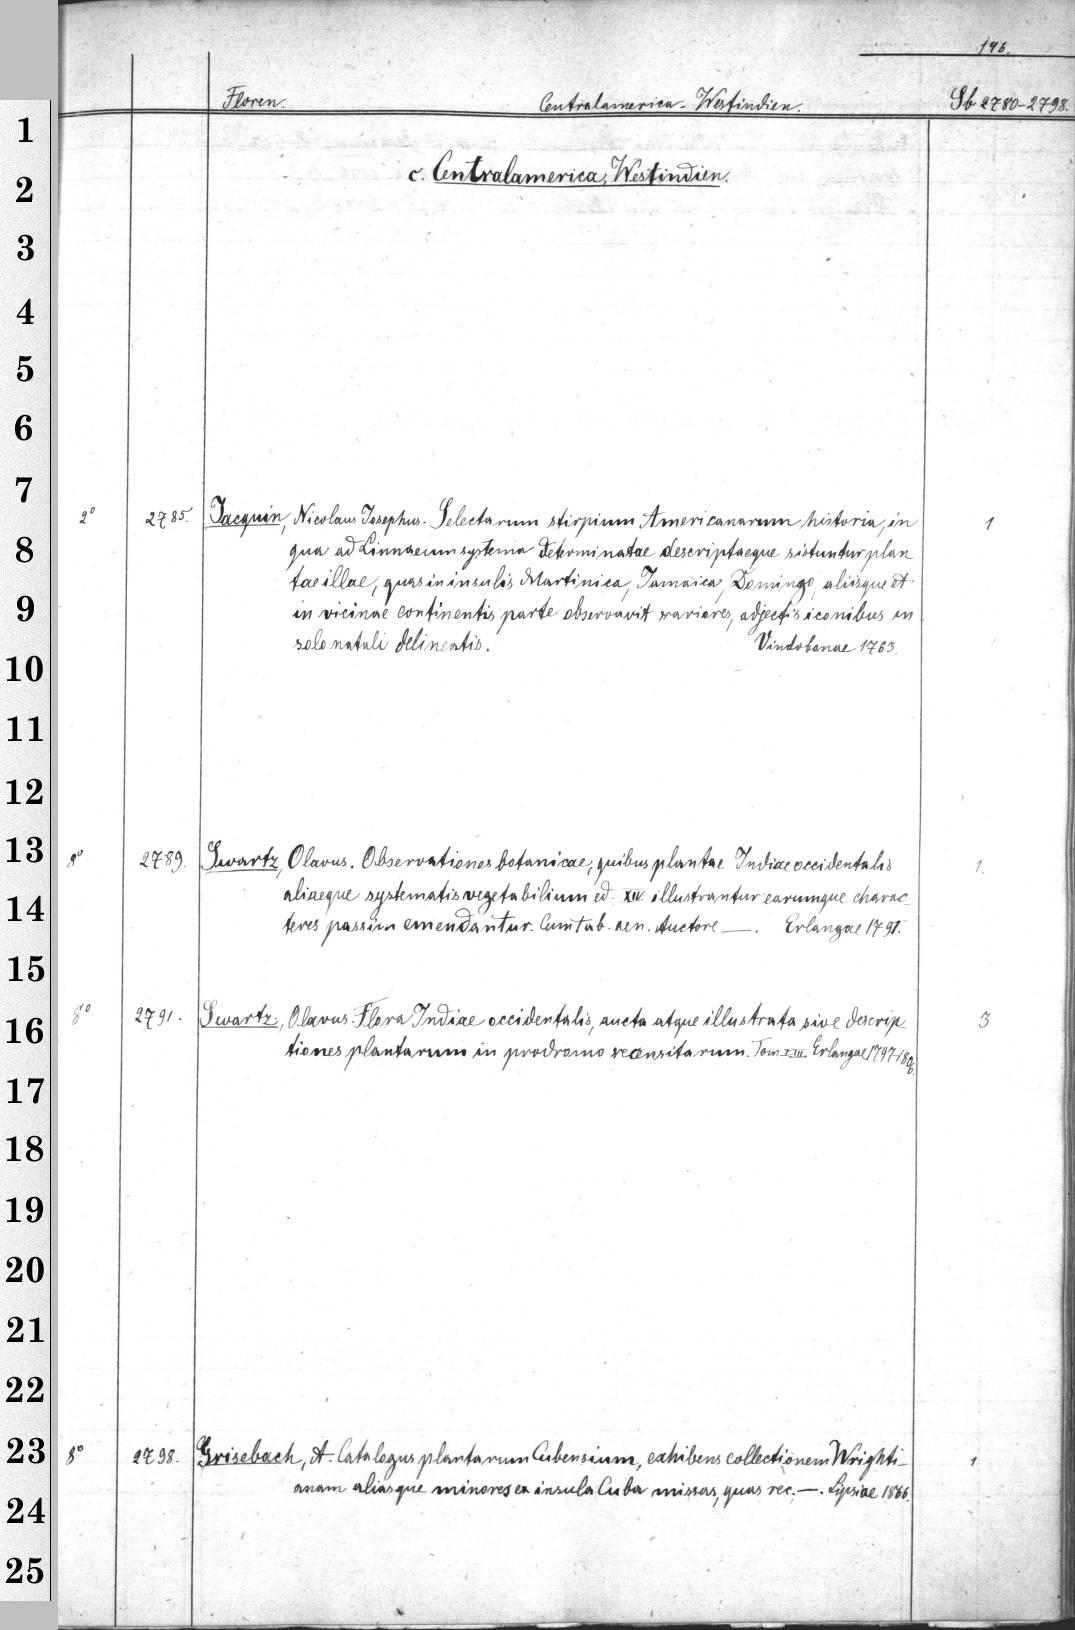 196.
Floren. Centralamerica - Westindien. Sb 2780-2798.
c. Centralamerica, Westindien.
2° 2785. Jacquin, Nicolaus Josephus. Selectarum stirpium Americanarum historia, in 1
qua ad Linnaeum systema determinatae descriptaeque sistuntur plan
tae illae, quas in insulis Martinica, Jamaica, Domingo, aliisque et
in vicinae continentis parte observavit rariores, adjectis iconibus in
solo natali delineatis. Vindobonae 1763.
8° 2789. Swartz, Olavus. Observationes botanicae, quibus plantae Indiae occidentalis 1.
aliaeque systematis vegetabilium ed. XIV illustrantur earumque charac_
teres passim emendantur. Cum tab. aen. Auctore —. Erlangae 1791.
8° 2791. Swartz, Olavus. Flora Indiae occidentalis, aucta atque illustrata sive descrip_ 3
tiones plantarum in prodromo recensitarum. Tom I-III. Erlangae 1797-1806.
8° 2798. Grisebach, A. Catalogus plantarum Cubensium, exhibens collectionem Wrighti_ 1
anam aliasque minores ex insula Cuba missas, quas rec. —. Lipsiae 1866.
1
2
3
4
5
6
7
8
9
10
11
12
13
14
15
16
17
18
19
20
21
22
23
24
25